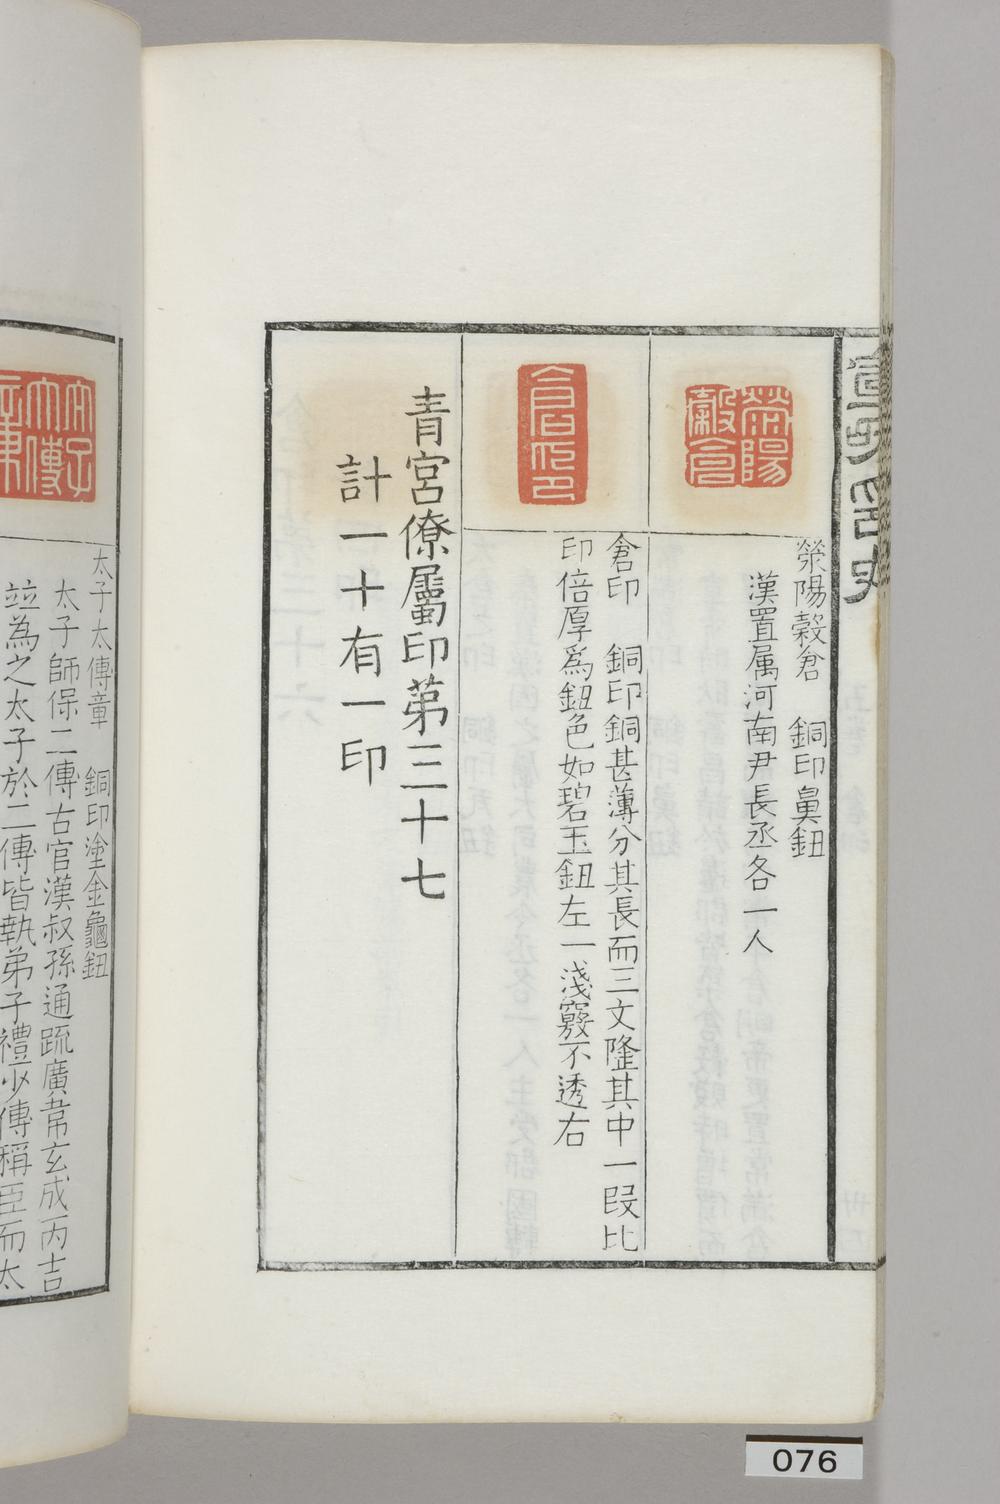 宣和印史
滎陽
穀倉
滎陽穀倉　銅印鼻鈕
漢置属河南尹長丞各一人
倉印
倉印　銅印銅甚薄分其長而三文隆其中一段比
印倍厚爲鈕色如碧玉鈕左一淺竅不透右
青宮僚屬印第三十七
計一十有一印
太子
太傅
章
太子太傅章　銅印塗金龜鈕
太子師保二傳古官漢叔孫通疏廣韋玄成丙吉
竝為之太子於二傳皆執弟子禮少傳稱臣而太
076